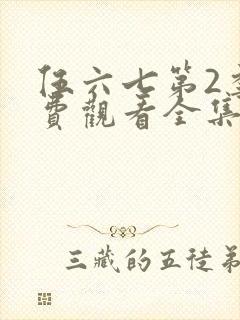 伍六七第2季
費觀看全集
三藏的五徒弟